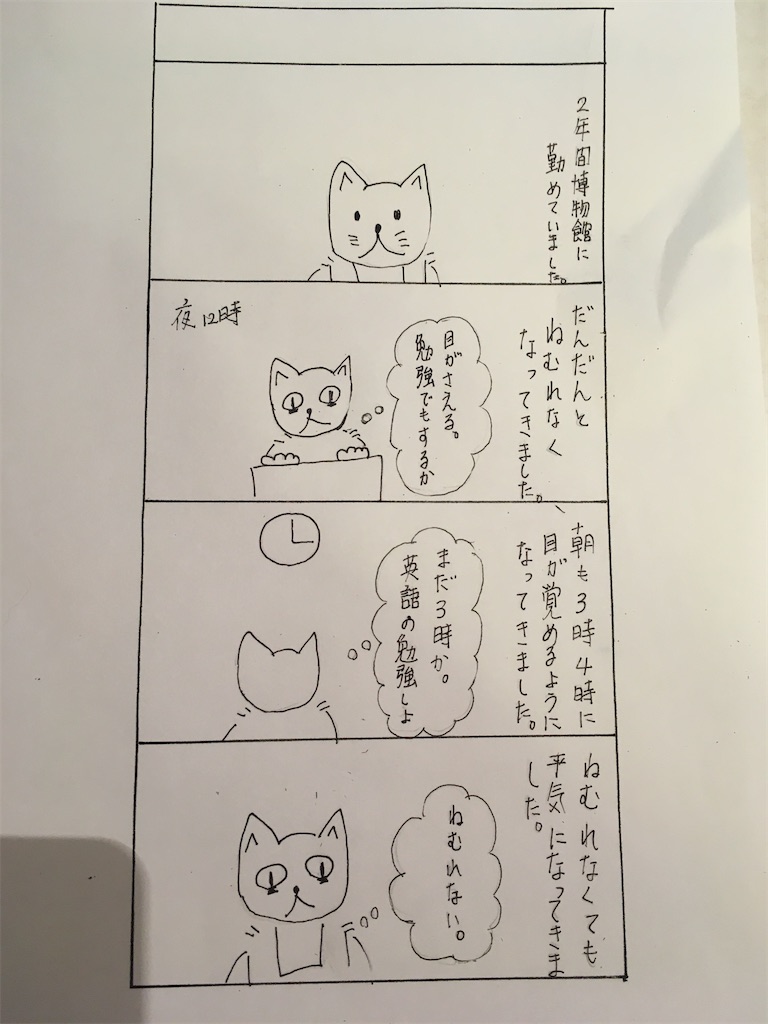 2年間博物館に
勤めていました。
だんだんと
ねむれなく
なってきました。
目がさえる。
勉強でもするか
夜12時
朝も3時4時に
目が覚めるように
なってきました。
まだ3時か。
英語の勉強しよ
ねむれなくても
平気になってきま
した。
ねむれない。